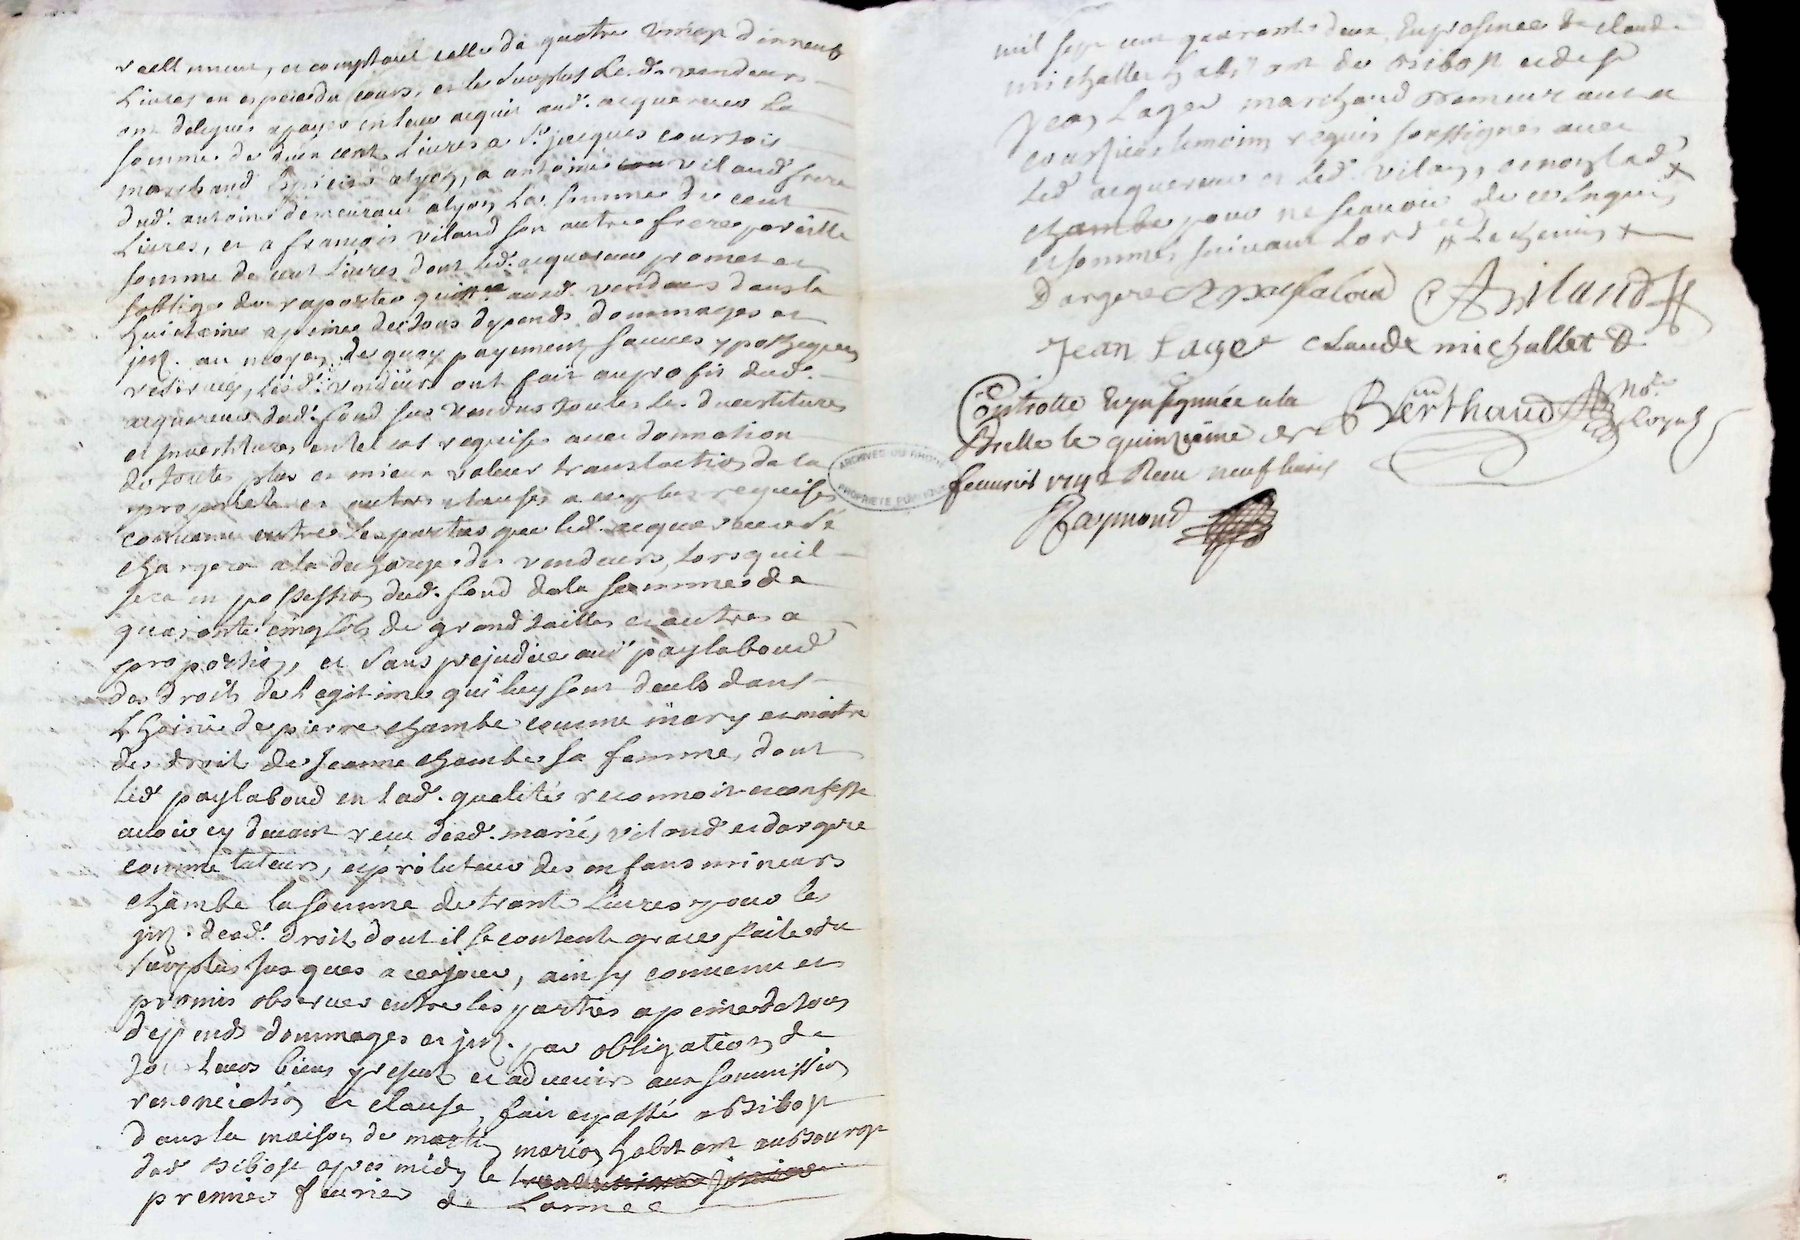 reellement, et comptant celle de quatre vingt dix neuf
Livres en especes du cours, et le surplus les d. vendeurs
ont delegués a payer en leur acquit aud. acquereur La
somme de deux cents Livres a sr. jacques courtois
marchand Epicier a lyon, a antoine vilaud frere
dud. antoine demeurant a lyon La somme de cent
Livres, et a francois vilaud son autre frere pareille
somme de cent Livres dont led. acquereur promet et
soblige de raporter quittce ausd. vendeurs dans la
huictaine a peine de tous depends dommages et
jnt. au moyen de quoy payement sauves ypotheques
reservees, lesd. vendeurs ont fait au profit dud.
acquereur dud. fond sus vendus toutes les devestitures
et jnvestitures en tel cas requises avec donnation
de toutes plus et mieux valeur translaction de la
proprieté et autres clauses a ce plus requises
convenu entre les parties que led. acquereur se
chargera a la decharge des vendeurs, Lors quil
sera en possession dud. fond de la somme de
quarante cinq sols de grand tailles et autres a
proportion, et sans prejudice aud. paylaboud
des droits de legitime qui luy sont deubs dans
Lhoirie de pierre chambe comme mary et maitre
des droits de Jeanne chambe sa femme, dont
Led. paylaboud en lad. qualité reconnoit et confesse
avoir cy devant receu desd. mariés vilaud et dargere
comme tuteurs, et protuteur des enfans mineurs
chambe la somme de trente Livres pour les
jnt. desd. droits dont il se contente grace faite du
surplus jusques a ce jour, ainsy convenu et
promis observer entre les parties a peine de tous
depends dommages et jnt. par obligation de
tous Leurs biens presents et advenir aux soumission
renonciation et clause, fait et passé a Bibost
dans la maison de marion habitant au Bourg
dud. Bibost apres midy le
premier fevrier de Lannee
mil sept cent quarante deux, En presence de claude
michallet habitant de Bibost et de sr
Jean Lager marchand Demeurant a
temoins requis soussignes avec
led. acquereur et led. vilaud, et non lad.
chambe pour ne scavoir de ce Enquis
et sommés suivant Lord.
Dargere Paylaloud A Vilaud
Jean Lager claude michallet
Controllé Et jnsignuée a la
Brelle le quinzieme
fevrier 1742 Receu neuf livres
Berthaud No.re Royal
Raymond
ARCHIVES DU RHONE
PROPRIETE PUBLIQUE